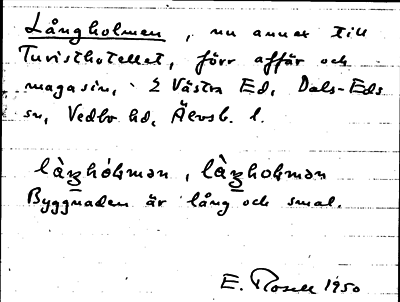 Långholmen, nu annex till
Turisthotellet, förr affär och
magasin, i Västra Ed, Dals-Eds
sn, Vedbo hd, Älvsb. l.
Byggnaden är lång och smal.
E. 1950